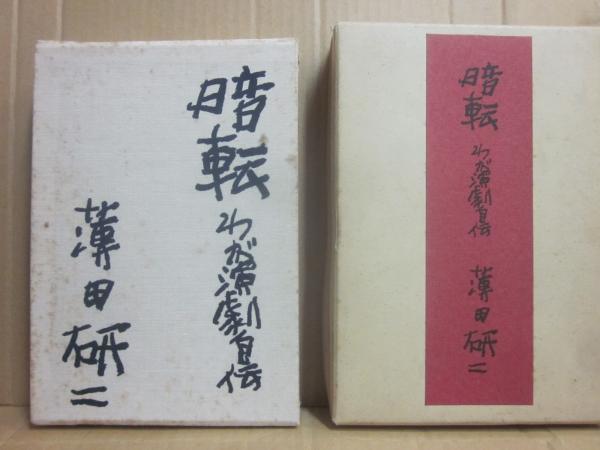 暗転
わが演劇自伝
薄田研二
暗転
わが演劇自伝
薄田研二